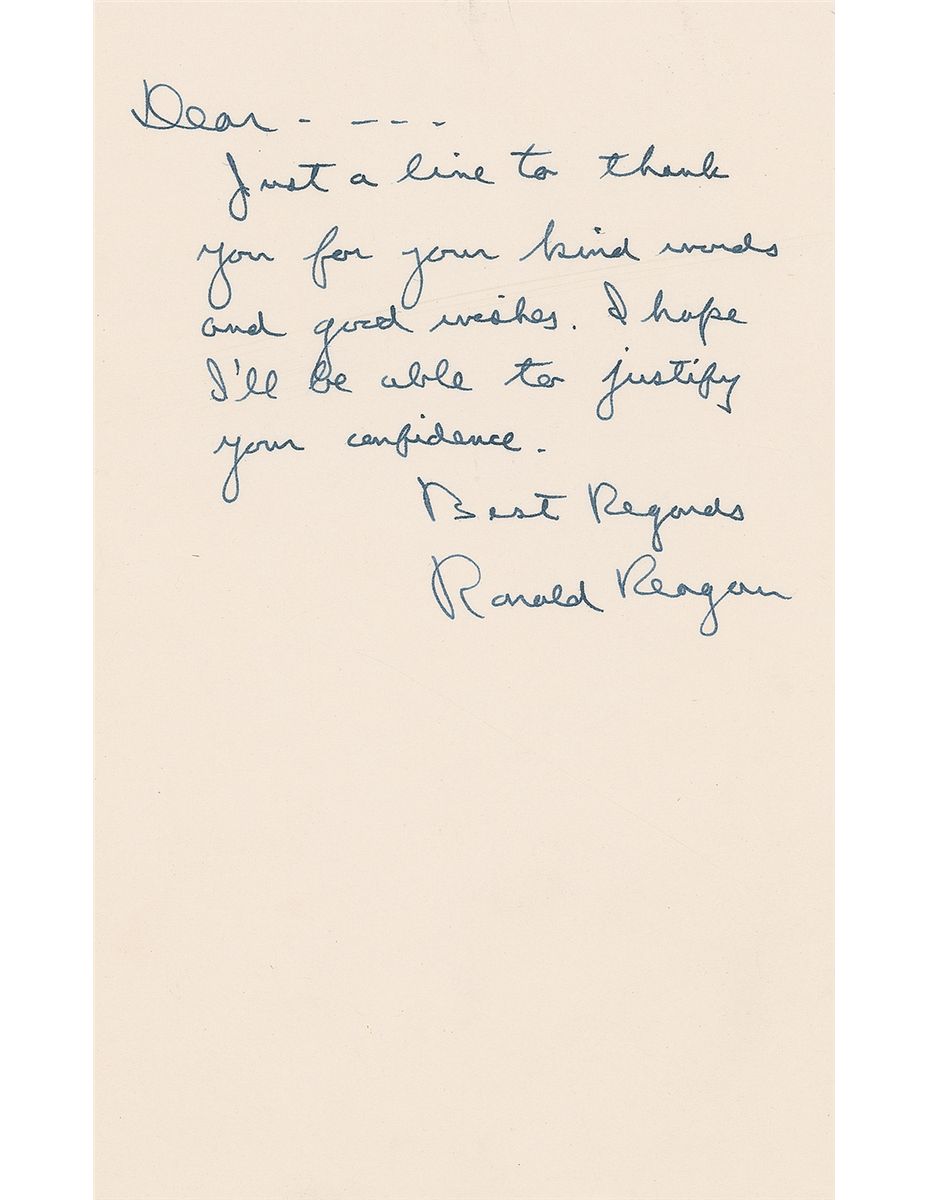 Dear - ---
Just a line to thank
you for your kind words
and good wishes. I hope
I'll be able to justify
your confidence.
Best Regards
Ronald Reagan